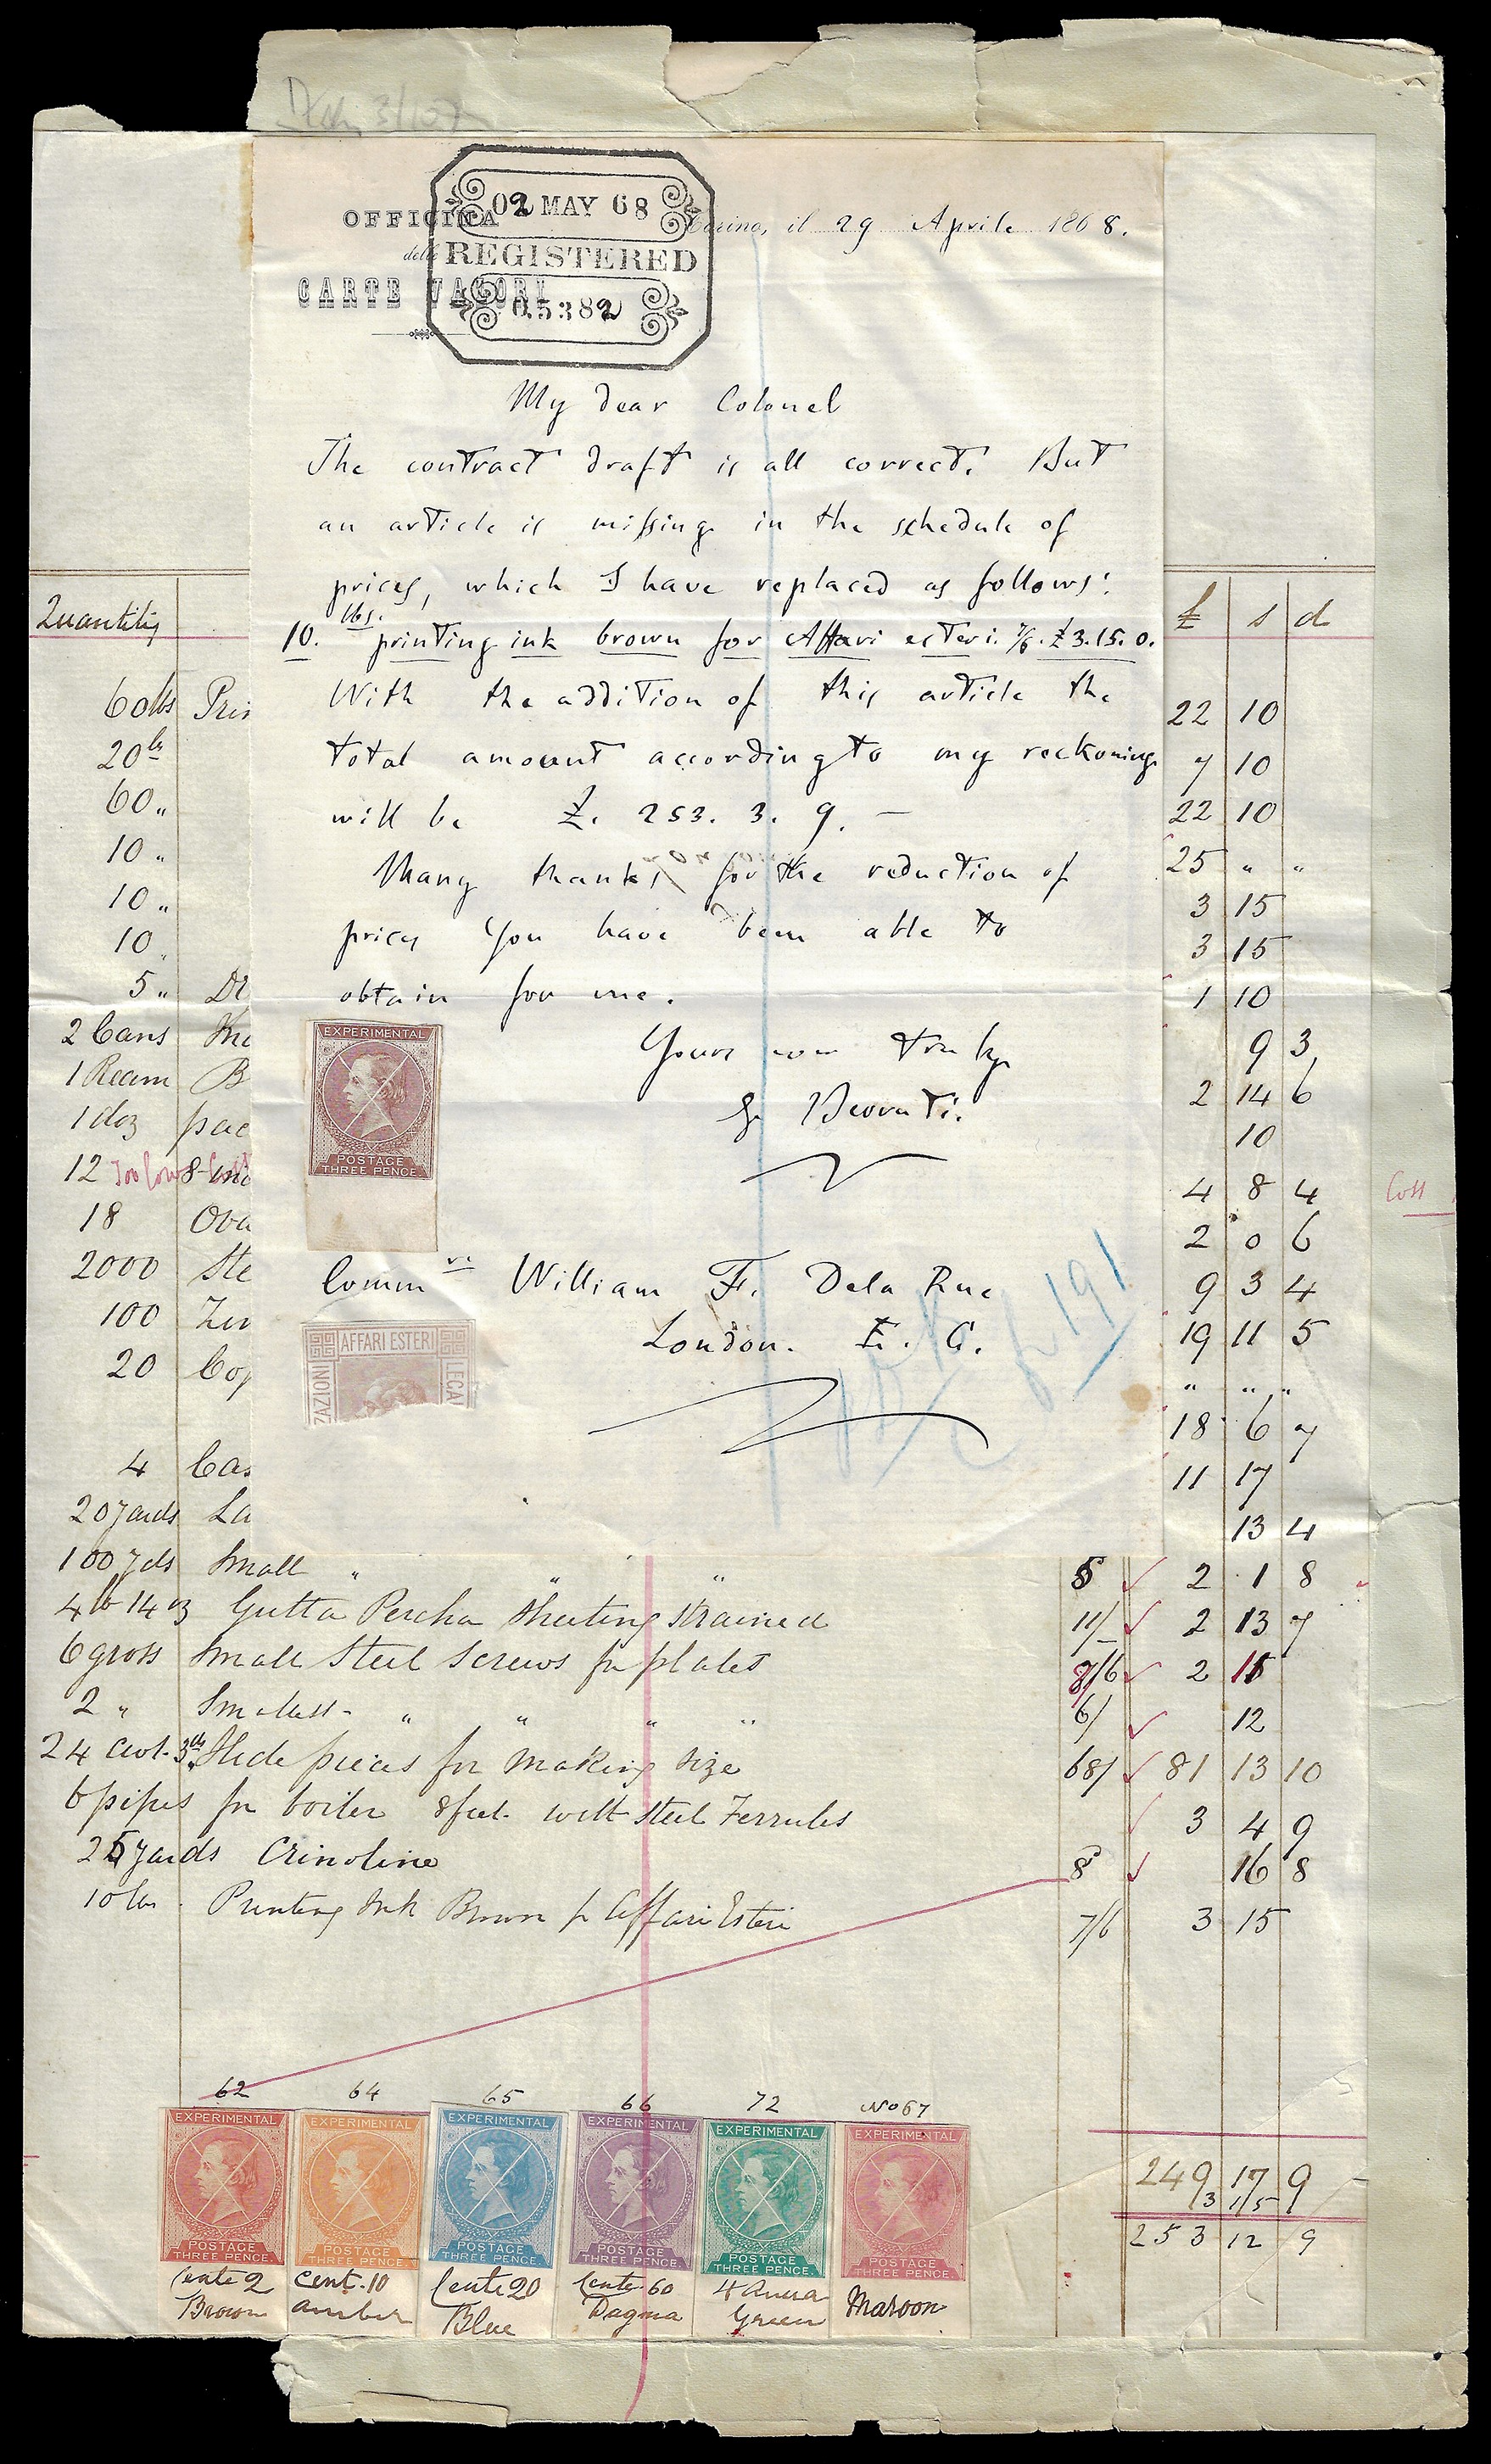 OFFICINA
delle
CARTE VALORI
02 MAY 68
REGISTERED
05382
Torino, il 29 Aprile 1868.
My dear Colonel
The contract draft is all correct. But
an article is missing in the schedule of
prices, which I have replaced as follows:
10. lbs. printing ink brown for Affari esteri. 7/6. £3.15.0.
With the addition of this article the
total amount according to my reckoning
will be £. 253. 3. 9. —
Many thanks for the reduction of
prices you have been able to
obtain for me.
Yours truly
EXPERIMENTAL
POSTAGE
THREE PENCE
Comm re William F. Dela Rue
London. E. C.
191
AFFARI ESTERI
ZAZIONI
LEGA
Quantity £ s d
60 lbs Prin 22 10
20 lbs 7 10
60 " 22 10
10 " 25 " "
10 " 3 15
10 " 3 15
5 " 1 10
2 Cans 9 3
1 Ream B 2 14 6
1 doz pac 10
12 Too low Cost 8 4 8 4 Cost
18 Ova 2 0 6
2000 Ste 9 3 4
100 Zin 19 11 5
20 Cop " " "
18 6 7
4 Cas 11 17
20 yards La 13 4
100 yds Small " " " 5 2 1 8
4 lb 14 oz Gutta Percha Sheeting Strained 11/- 2 13 7
6 gross Small Steel Screws for plates 2
2 " Smallest " " " " 6/ 12
24 cwt. Hide pieces for making size 68/ 81 13 10
6 pipes for boiler 8 feet with Steel Ferrules 3 4 9
25 yards Crinoline 8 16 8
10 lbs Printing Ink Brown for Affari Esteri 7/6 3 15
249 17 9
3 15
253 12 9
62 64 65 66 72 No 67
EXPERIMENTAL EXPERIMENTAL EXPERIMENTAL EXPERIMENTAL EXPERIMENTAL EXPERIMENTAL
POSTAGE POSTAGE POSTAGE POSTAGE POSTAGE POSTAGE
THREE PENCE THREE PENCE THREE PENCE THREE PENCE THREE PENCE THREE PENCE
Cente 2 Cent. 10 Cente 20 Cente 60 4 Anna Maroon
Brown amber Blue Dagma Green